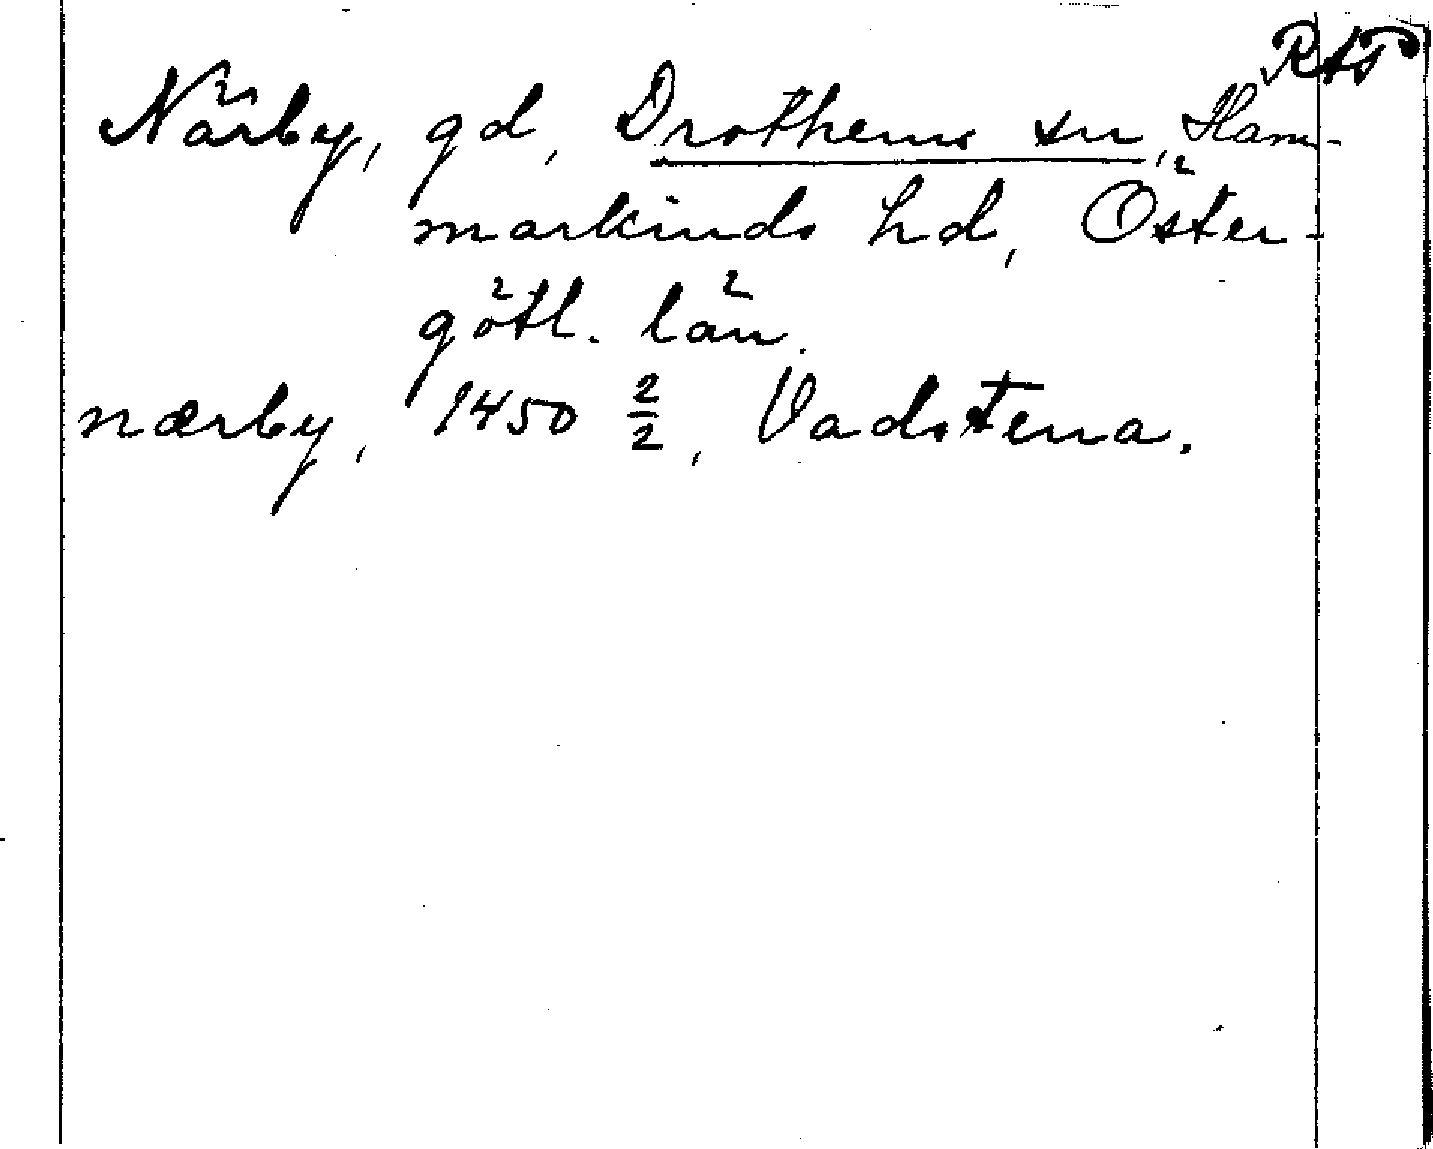 RAP
Närby, gd, Drothems sn, Ham-
markinds hd, Öster-
götl. län.
nærby, 1450 2/2, Vadstena.